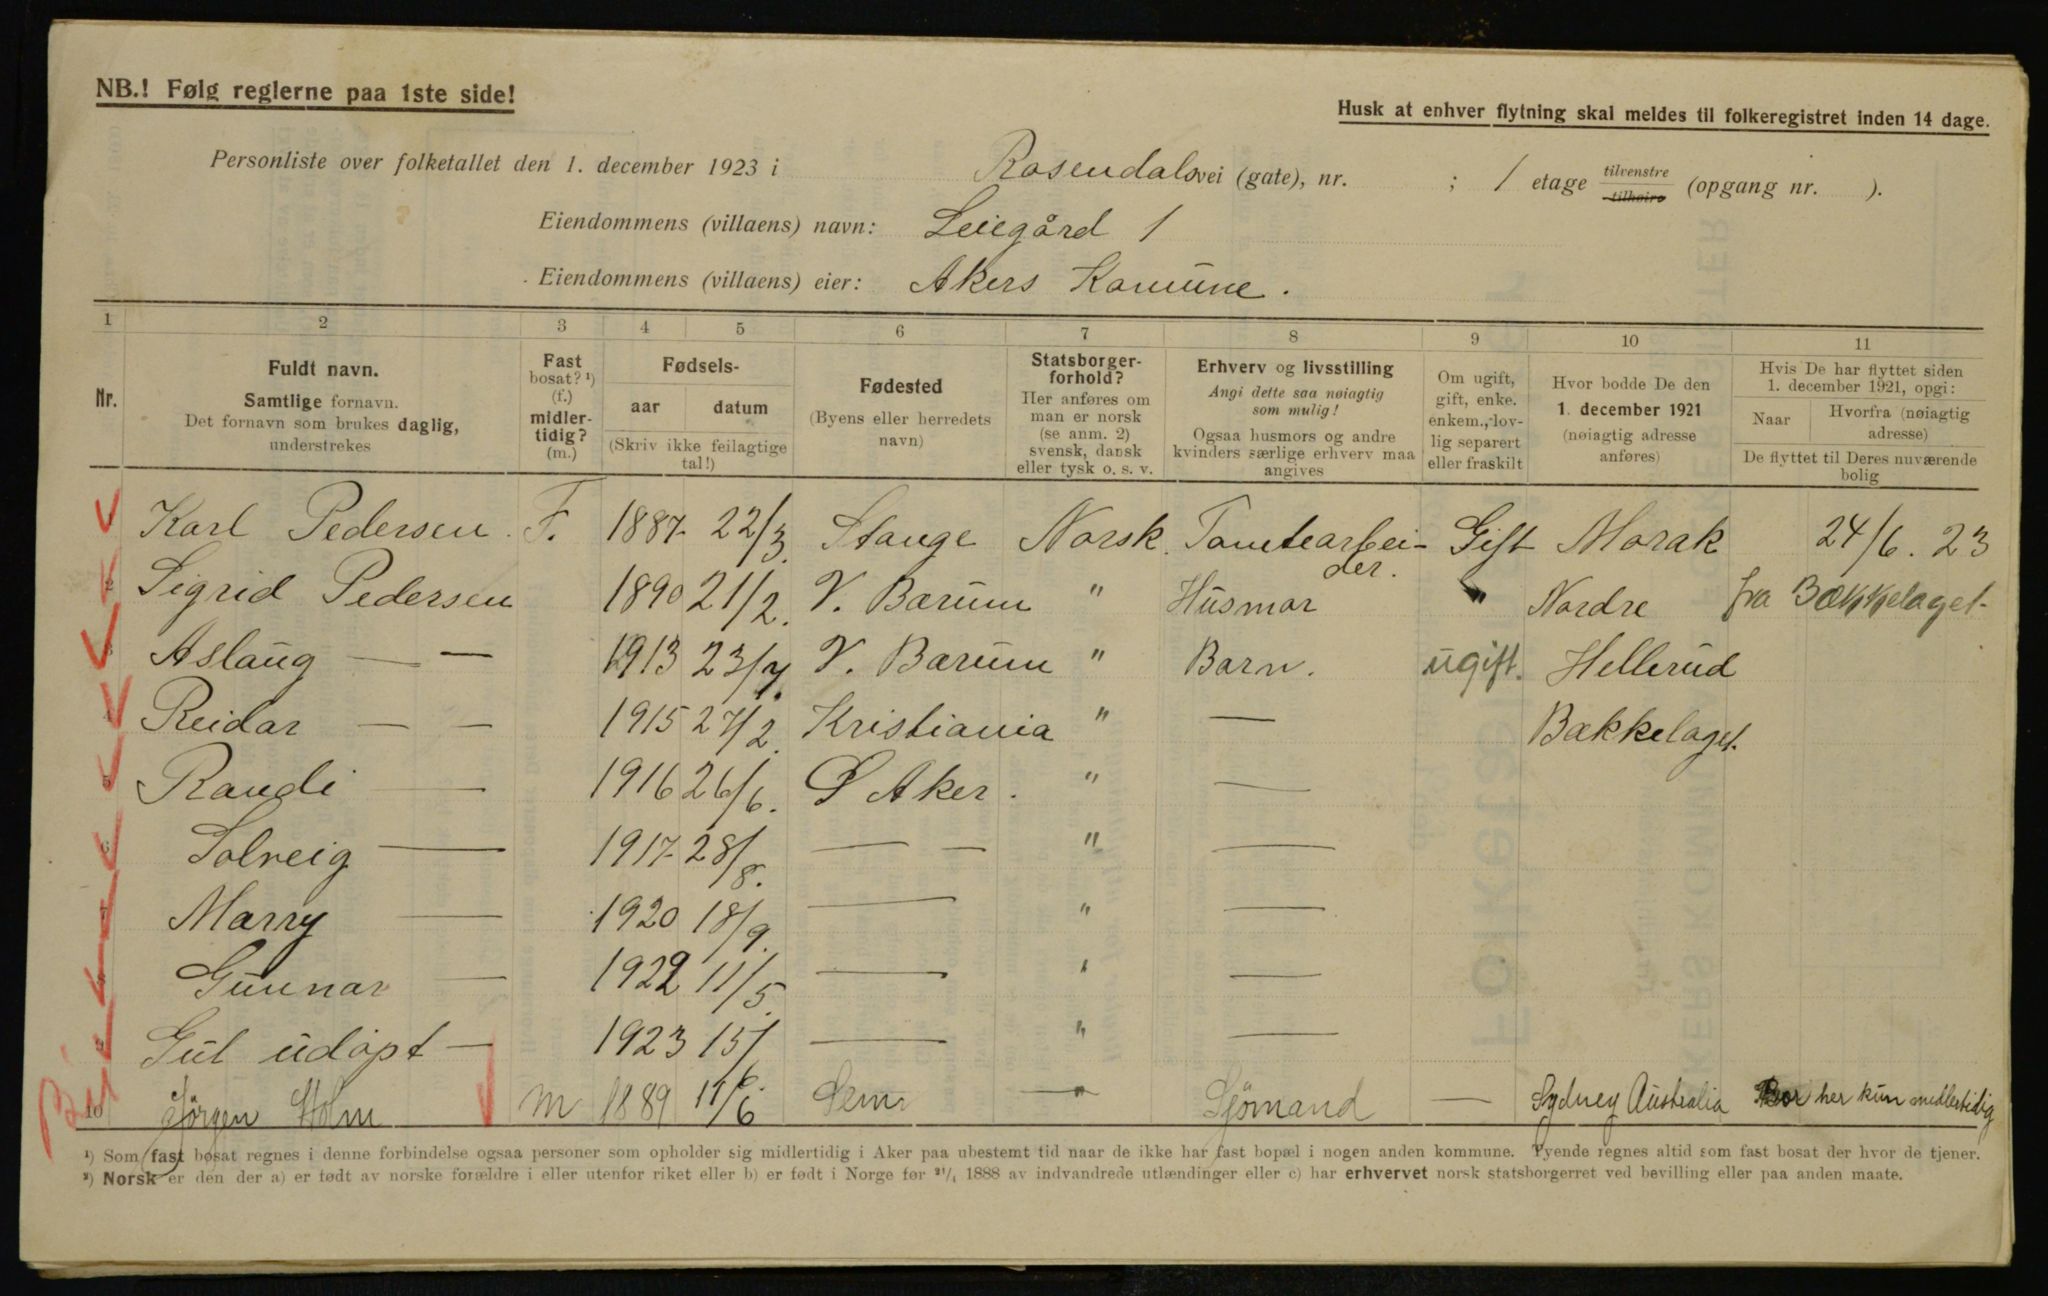 NB.! Følg reglerne paa 1ste side!
Husk at enhver flytning skal meldes til folkeregistret inden 14 dage.
Personliste over folketallet den 1. december 1923 i Rosendalsvei (gate), nr. ; 1 etage tilvenstre tilhøire (opgang nr. ).
Eiendommens (villaens) navn: Leiegård 1
Eiendommens (villaens) eier: Akers Komune.
1 2 3 4 5 6 7 8 9 10 11
Nr.
Fuldt navn.
Samtlige fornavn.
Det fornavn som brukes daglig,
understrekes
Fast
bosat? ¹)
(f.)
midler-
tidig?
(m.)
Fødsels-
aar datum
(Skriv ikke feilagtige
tal!)
Fødested
(Byens eller herredets
navn)
Statsborger-
forhold?
Her anføres om
man er norsk
(se anm. 2)
svensk, dansk
eller tysk o. s. v.
Erhverv og livsstilling
Angi dette saa nøiagtig
som mulig!
Ogsaa husmors og andre
kvinders særlige erhverv maa
angives
Om ugift,
gift, enke.
enkem., lov-
lig separert
eller fraskilt
Hvor bodde De den
1. december 1921
(nøiagtig adresse
anføres)
Hvis De har flyttet siden
1. december 1921, opgi:
Naar Hvorfra (nøiagtig
adresse)
De flyttet til Deres nuværende
bolig
1 Karl Pedersen. F. 1887 22/3. Stange Norsk. Tomtearbei-
der. Gift Morak 24/6. 23
2 Sigrid Pedersen 1890 21/2. V. Bærum " Husmor " Nordre fra Bækkelaget.
3 Aslaug — — 1913 23/7. V. Bærum " Barn. ugift. Hellerud
4 Reidar — — 1915 27/2. Kristiania " — Bækkelaget.
5 Randi — 1916 26/6. Ø Aker. " —
6 Solveig — 1917 28/8. — — " —
7 Marry — 1920 18/9. — " —
8 Gunnar — 1922 11/5. — " —
9 Gut udøpt — 1923 15/ — " —
10 Jörgen Holm m 1889 11/6 Sem — " Sjömand — Sydney Australia Bor her kun midlertidig
¹) Som fast bosat regnes i denne forbindelse ogsaa personer som opholder sig midlertidig i Aker paa ubestemt tid naar de ikke har fast bopæl i nogen anden kommune. Tyende regnes altid som fast bosat der hvor de tjener.
²) Norsk er den der a) er født av norske forældre i eller utenfor riket eller b) er født i Norge før ²¹/₁ 1888 av indvandrede utlændinger eller c) har erhvervet norsk statsborgerret ved bevilling eller paa anden maate.